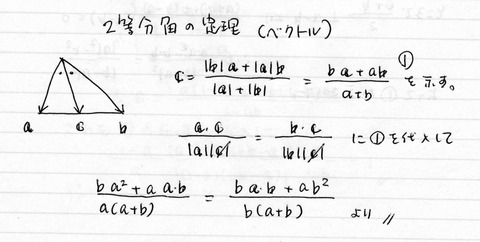 2等分角の定理 (ベクトル)
𝕔 = (|𝕓|𝕒 + |𝕒|𝕓) / (|𝕒| + |𝕓|) = (b𝕒 + a𝕓) / (a + b) ① を示す。
𝕒 𝕔 𝕓
(𝕒・𝕔) / (|𝕒||𝕔|) = (𝕓・𝕔) / (|𝕓||𝕔|) に①を代入して
(b a² + a 𝕒・𝕓) / (a(a+b)) = (b 𝕒・𝕓 + a b²) / (b(a+b)) より //